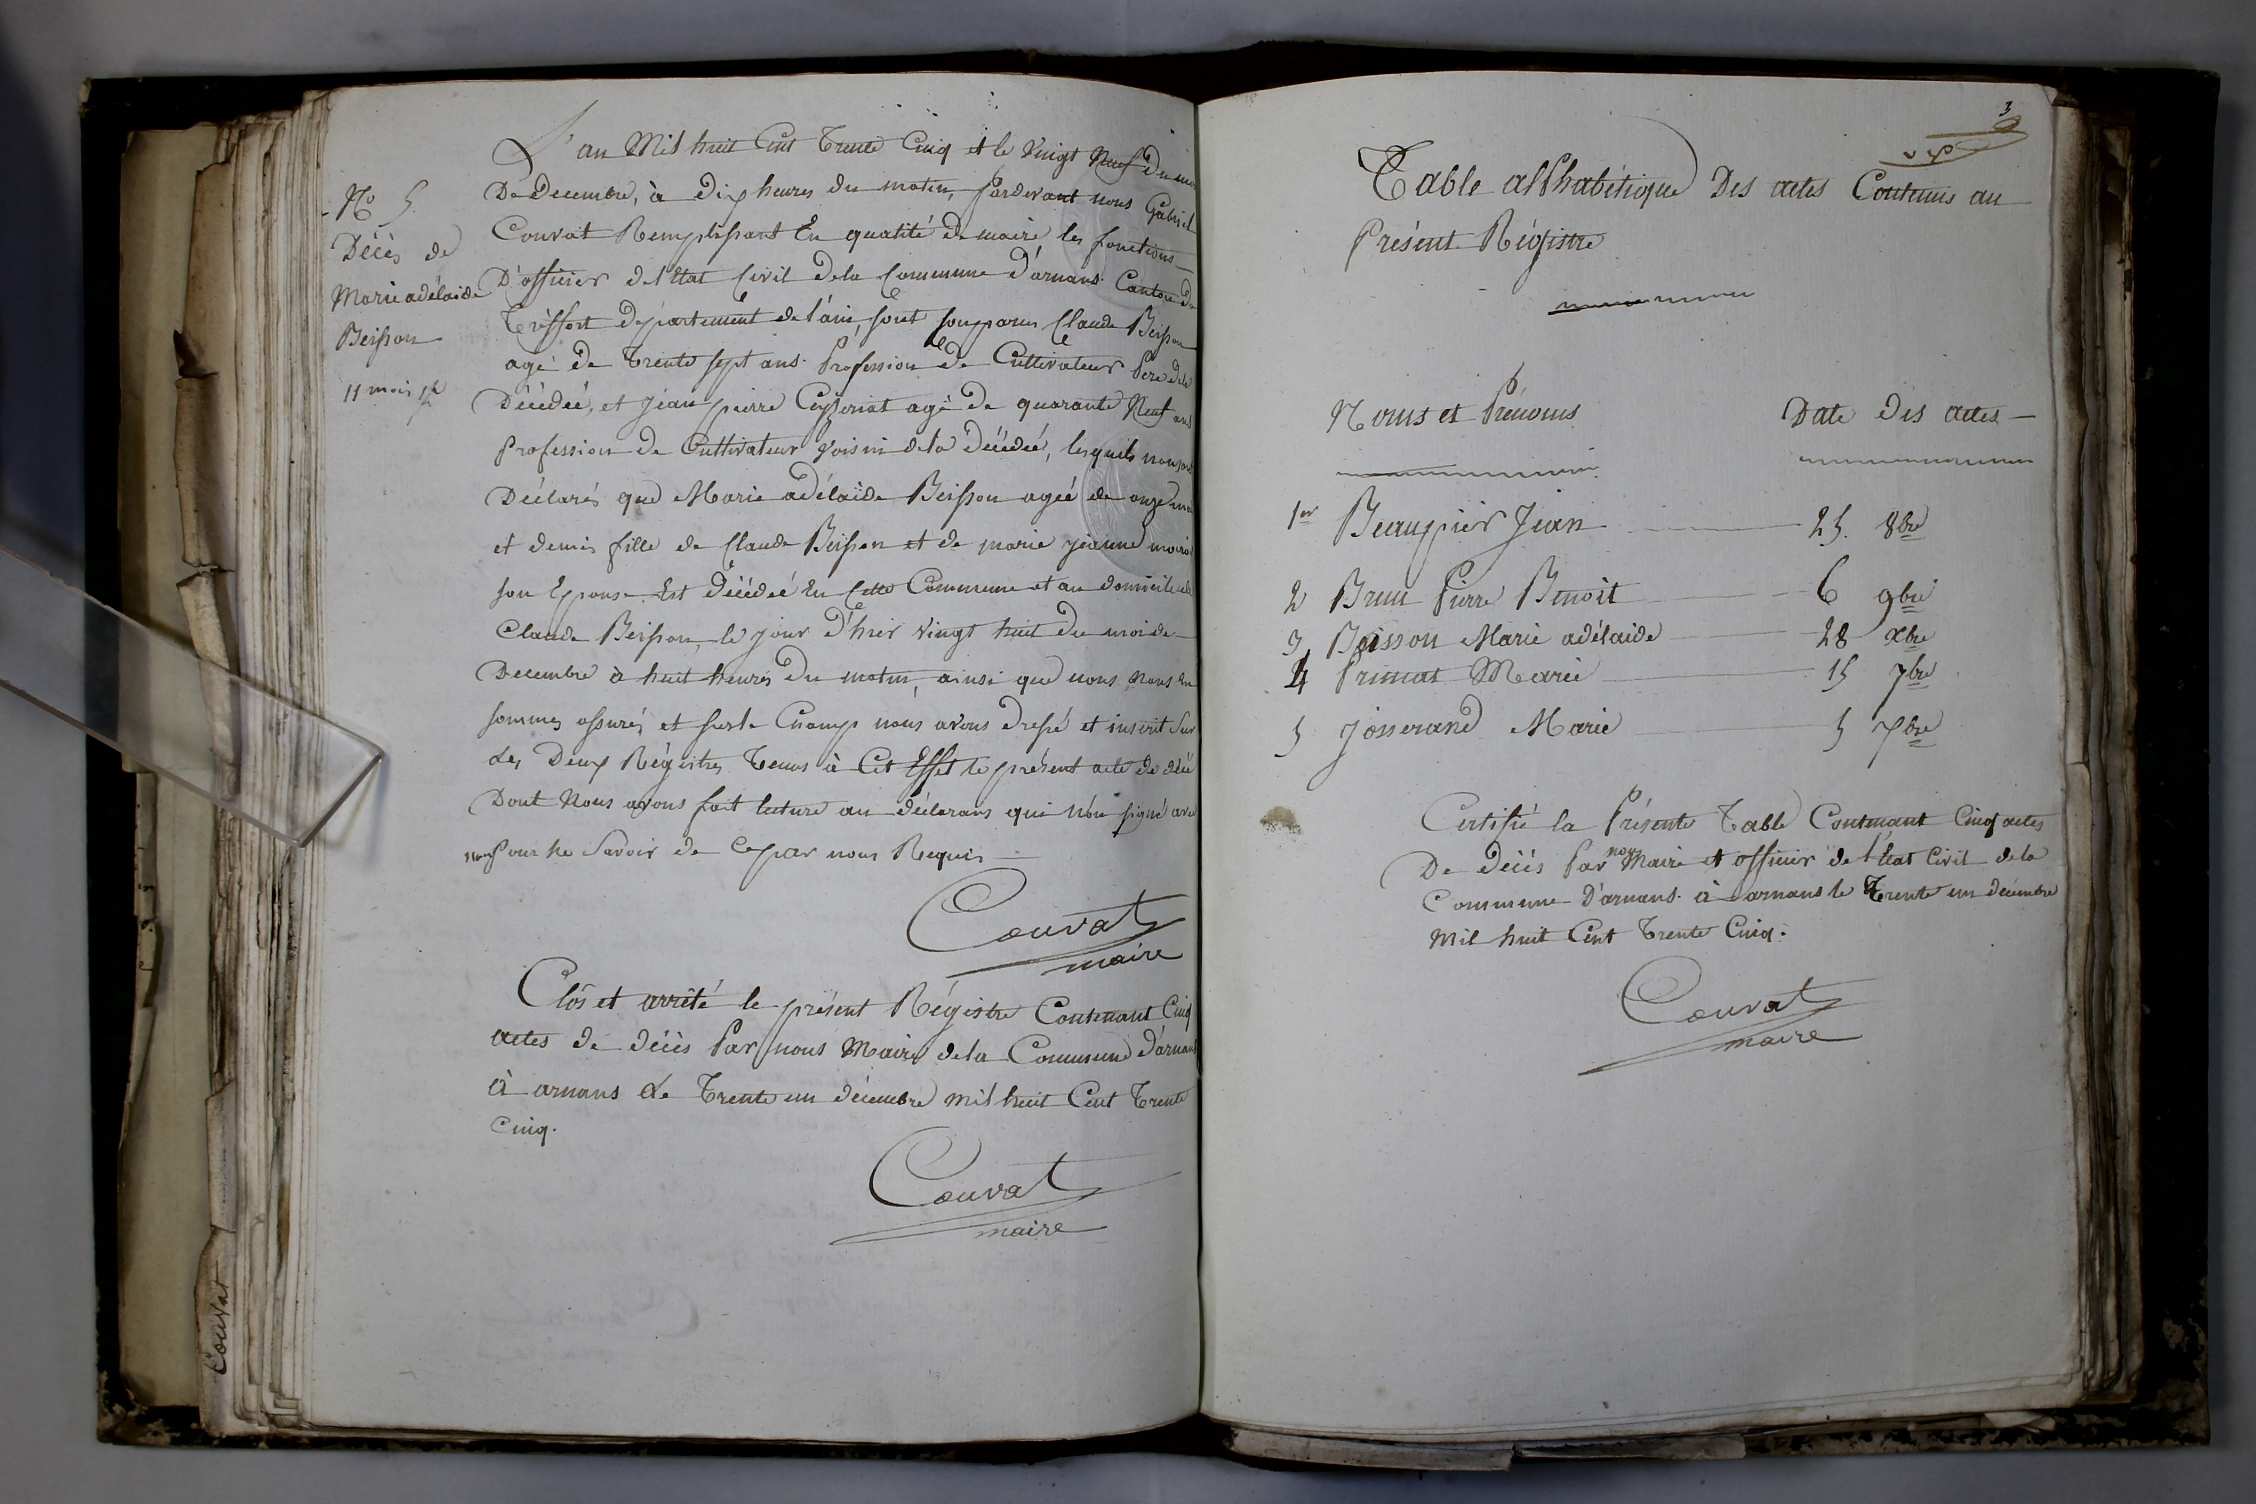 No 5.
Décès de
Marie adélaide
Beisson
11 mois ½
L'an Mil huit Cent Trente Cinq et le Vingt Neuf du mois
De Decembre, à dix heures du matin, Pardevant nous Gabriel
Couvat Remplissant En qualité de maire, les fonctions
D'officier de l'Etat Civil de la Commune d'arnans Canton de
Tréffort département de l'ain, sont Comparus Claude Beisson
agé de Trente sept ans Profession de Cultivateur Pere de la
Décédée, et Jean pierre Ceyzeriat agé de quarante Neuf ans
Profession de Cultivateur Voisin de la Décédée, lesquels nous ont
Déclarés que Marie adélaïde Beisson agée de onze mois
et demis fille de Claude Beisson et de marie jeanne
son Epouse Est Décédée En Cette Commune et au domicile de
Claude Beisson, le jour d'hier Vingt huit du moi de
Decembre à huit heures du matin, ainsi que nous nous En
sommes assurés et sur le Champ nous avons dressé et inscrit Sur
Les Deux Régistres Tenus à Cet Effet le présent acte de décé
Dont Nous avons fait lecture au déclarans qui n'on signé avec
nous Pour ne Savoir de Ce par nous Requis
Couvat
maire
Clôs et arrêté le présent Régistre Contenant Cinq
actes de décès Par nous Maire de la Commune d'arnans
à arnans Le Trente un décembre mil huit Cent Trente
Cinq.
Couvat
maire
Couvat
3
Table alphabétique Des actes Contenus au
Présent Régistre
Noms et Prénoms Date des actes
1er Beaupier Jean 25. 8bre
2 Brun Pierre Benoit 6 9bre
3 Beisson Marie adélaide 28 xbre
4 Primat Marie 15 7bre
5 Josserand Marie 5 7bre
Certifié la Présente Table Contenant Cinq actes
De décés Par nous Maire et officier de l'Etat Civil de la
Commune D'arnans à arnans le Trente un décembre
Mil huit Cent Trente Cinq.
Couvat
maire